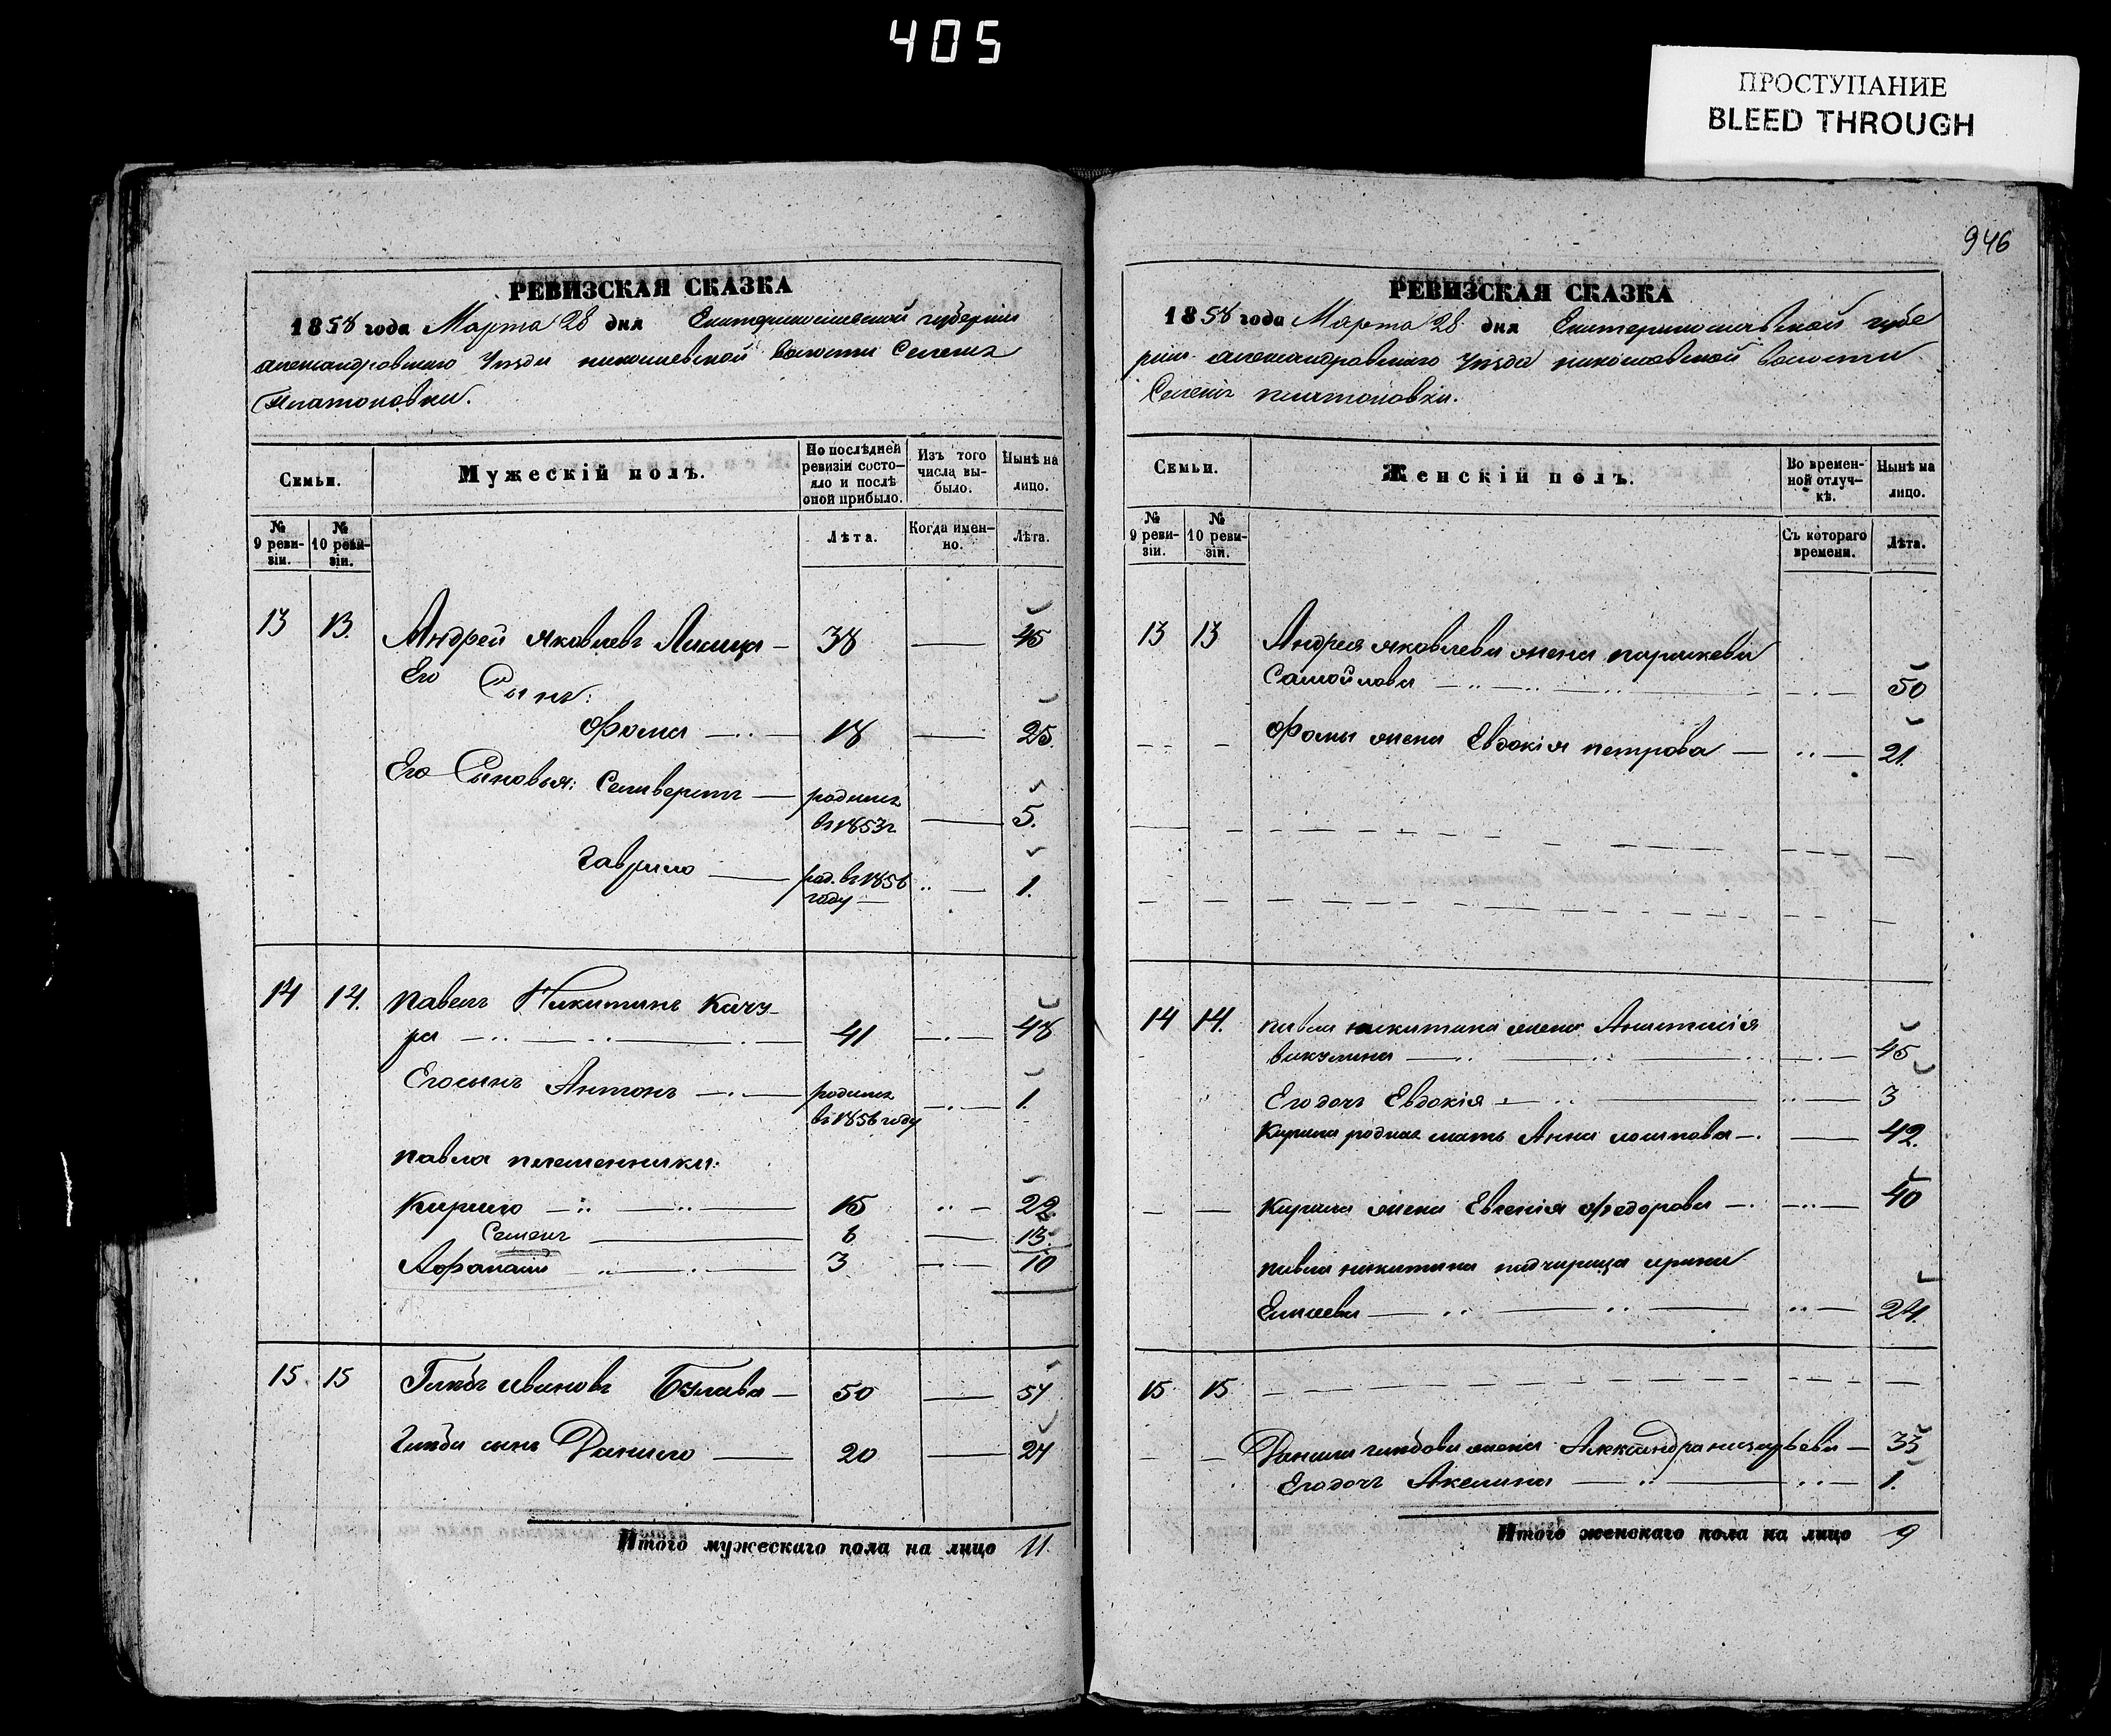 405
ПРОСТУПАНИЕ
BLEED THROUGH
946
РЕВИЗСКАЯ СКАЗКА
1858 года Марта 28 дня Екатеринославской губернии
александровского Уезда николаевской волости Селения
Платоновки.
Семьи.
Мужескій полъ.
По послѣдней ревизіи состо-
яло и послѣ
оной прибыло.
Изъ того
числа вы-
было.
Нынѣ на
лицо.
№
9 реви-
зіи.
№
10 реви-
зіи.
Лѣта.
Когда имен-
но.
Лѣта.
13 13. Андрей яковлевъ Лисица — 38 — 45
Его Сынъ:
Фома — 18 — 25.
Его Сыновья: Селиверстъ — родился
въ 1853г — 5.
Гаврило — род. въ 1856
году — 1.
14 14. павелъ Никитинъ Качу-
ра — 41 — 48
Его сынъ Антонъ — родился
въ 1856 году — 1.
павла племенники:
Кирило — 15 — 22
Семенъ — 6 — 13.
Афанасий — 3 — 10
15. 15 Глѣбъ ивановъ Булава — 50 — 57
Глѣба сынъ Данило — 20 — 27
Итого мужескаго пола на лицо 11.
РЕВИЗСКАЯ СКАЗКА
1858 года Марта 28 дня Екатеринославской губе
рнии александровского уезда николаевской волости
Селения платоновки.
Семьи.
Женскій полъ.
Во времен-
ной отлуч-
кѣ.
Нынѣ на
лицо.
№
9 реви-
зіи.
№
10 реви-
зіи.
Съ котораго
времени.
Лѣта.
13 13 Андрея яковлева жена параскева
Самойлова — 50
Фомы жена Евдокія петрова — 21.
14 14. павла никитина жена Анастасія
викулина — 45
Его дочь Евдокія — 3
Кирила родная мать Анна — 42.
Кирила жена Евгенія федорова — 40
павла никитина падчирица ирина
Елисеева — 24.
15 15
Данила глѣбова жена Александра назарьева — 33
Его дочь Акелина — 1.
Итого женскаго пола на лицо 9